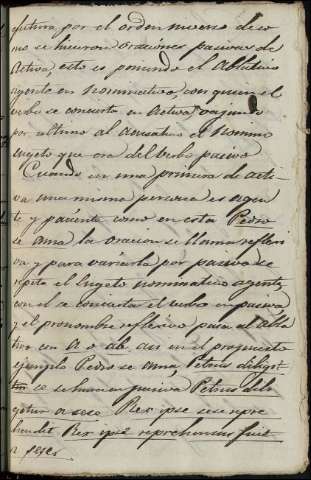 futura, por el orden mismo de co
mo se hicieron oraciones pasivas de
Activa, esto es poniendo el Ablativo
agente en Nominativo, con quien el
verbo se concierta en Activa, vajando
por ultimo al Acusativo el Nomina
sugeto que era del verbo pasivo
Cuando en una primera de acti-
va una misma persona es agen
te y paciente como en esta Pedro
se ama la oracion se llama reflexi
va y para variarla por pasiva se
repite el sugeto nominativo agente,
con el se concierta el verbo en pasiva
y el pronombre reflexivo pasa al abla
tivo con A o ab, asi en el propuesto
ejemplo Pedro se ama Petrus diligit
se se hara en pasiva Petrus dili
gitur a sese Rex ipse se repre
hendit Rex ipse reprehensus fuit
a sese